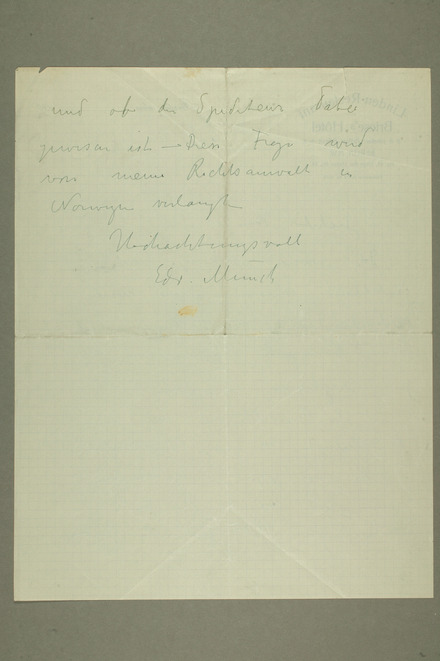 und ob der Spediteur dabei
gewesen ist – Diese Frage wird
von meine Rechtsanwalt in
Norwegen verlangt
Hochachtungsvoll
Edv. Munch